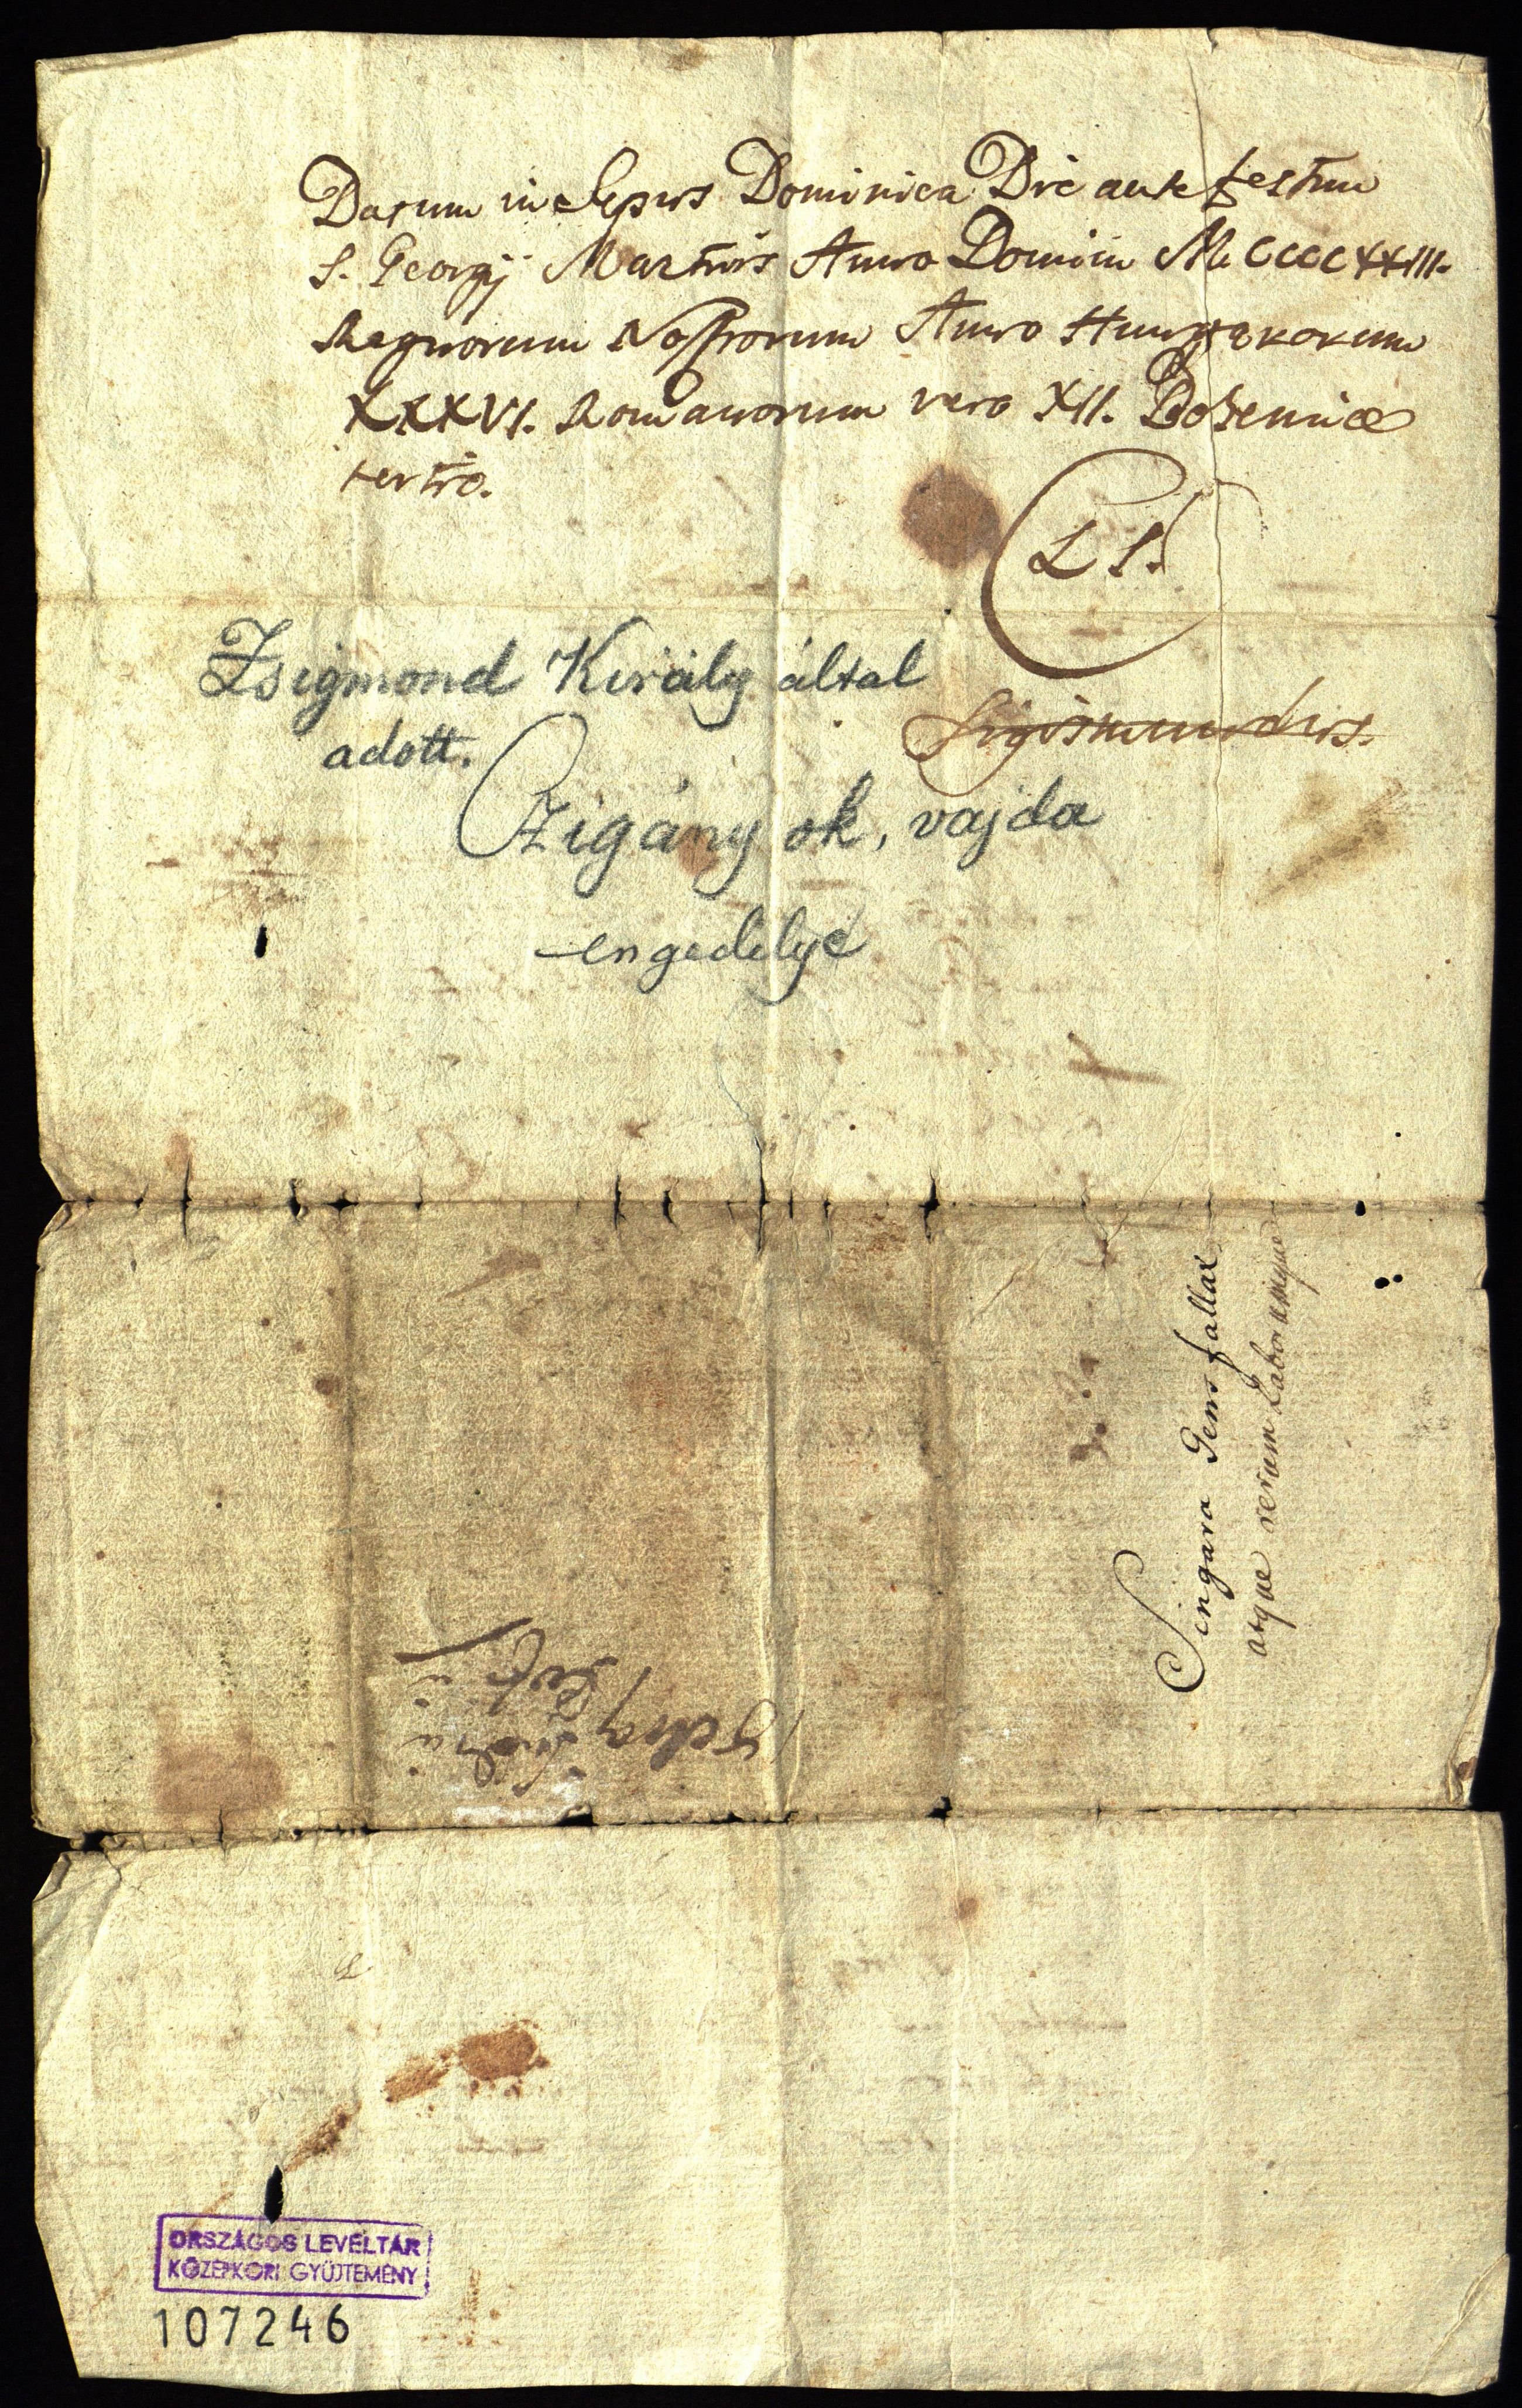 Datum in Sepus Dominica Die ante festum
S. Georgÿ Martiris Anno Domini MCCCCXXIII.
Regnorum Nostrorum Anno Hungarorum
XXXVI. Romanorum vero XII. Bohemiæ
tertio.
L S.
Sigismundus.
Zsigmond Király által
adott.
Czigány ok, vajda
engedélyé
Singara Gens fallax
atque rerum Laborumque
ORSZÁGOS LEVÉLTÁR
KÖZÉPKORI GYŰJTEMÉNY
107246